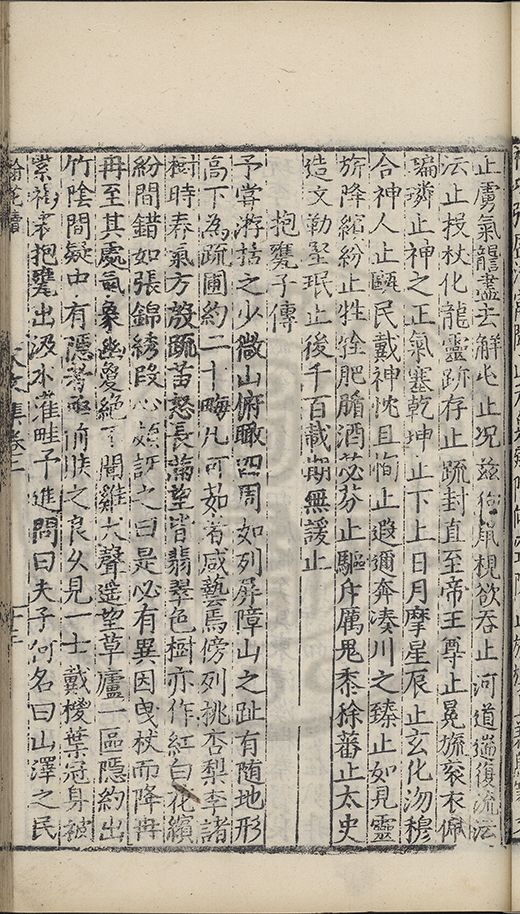 氣詟盡去解屯止况茲 鼠梘欲吞止河道 復流
沄止投杖化龍靈跡存止疏封直至帝王尊止冕旒衮衣佩
璘止神之正氣塞乾坤止下上日月摩星辰止玄化沕穆
合神人止甌民戴神忱且恂止遐邇奔湊川之臻止如見靈
旂降繽紛止牲牷肥腯酒苾芬止驅斥厲鬼黍稌蕃止太史
造文勒堅珉止後千百載期無諼止
抱甕子傳
予嘗游括之少微山俯瞰四周如列屏障山之趾有随地形
高下為疏圃約二十畮凡可茹者咸藝焉傍列桃杏梨李諸
樹時春氣方殷疏苗怒長滿望皆翡翠色樹亦作紅白花繽
紛間錯如張錦綉段心頗訝之曰是必有異因曳杖而降冉
冉至其處氣象幽夐絕不聞雞犬聲遥望草廬一區隱約出
竹陰間疑中有隱者亟前候之良久見一士戴椶葉冠身被
紫褐裘抱甕出汲水灌畦予進問曰夫子何名曰山澤之民
集卷二